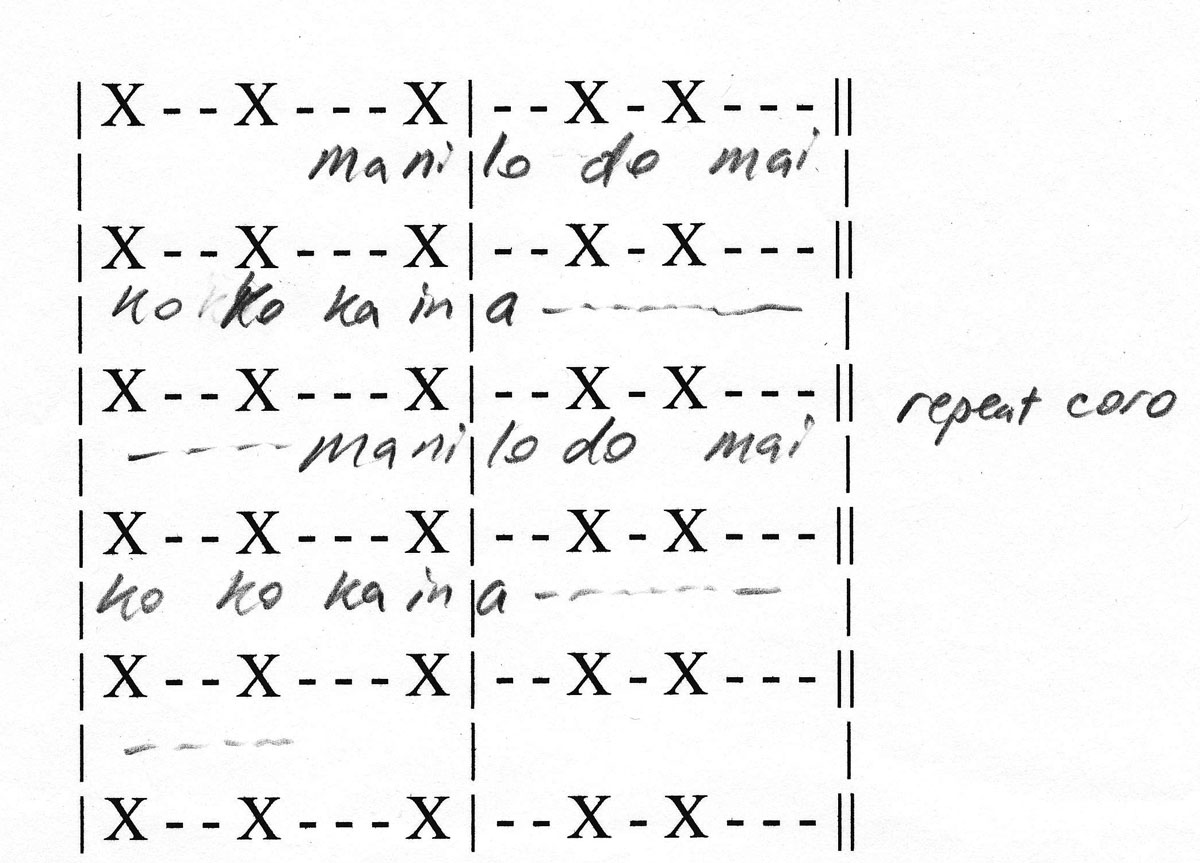 |X--X---X|--X-X---||
| mani|lo do mai |
|X--X---X|--X-X---||
|ko ko ka in|a ------ |
|X--X---X|--X-X---|| repeat coro
|---- mani|lo do mai |
|X--X---X|--X-X---||
|ko ko ka in|a ------ |
|X--X---X|--X-X---||
|---- | |
|X--X---X|--X-X---||